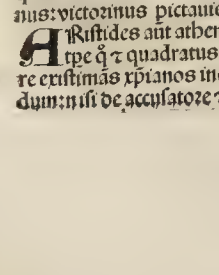 nus:victorinus pictauie
ARistides aūt athen
tpe q̊ ⁊ quadratus
re existimãs xp̄ianos in
dum:nisi de accusatore ⁊